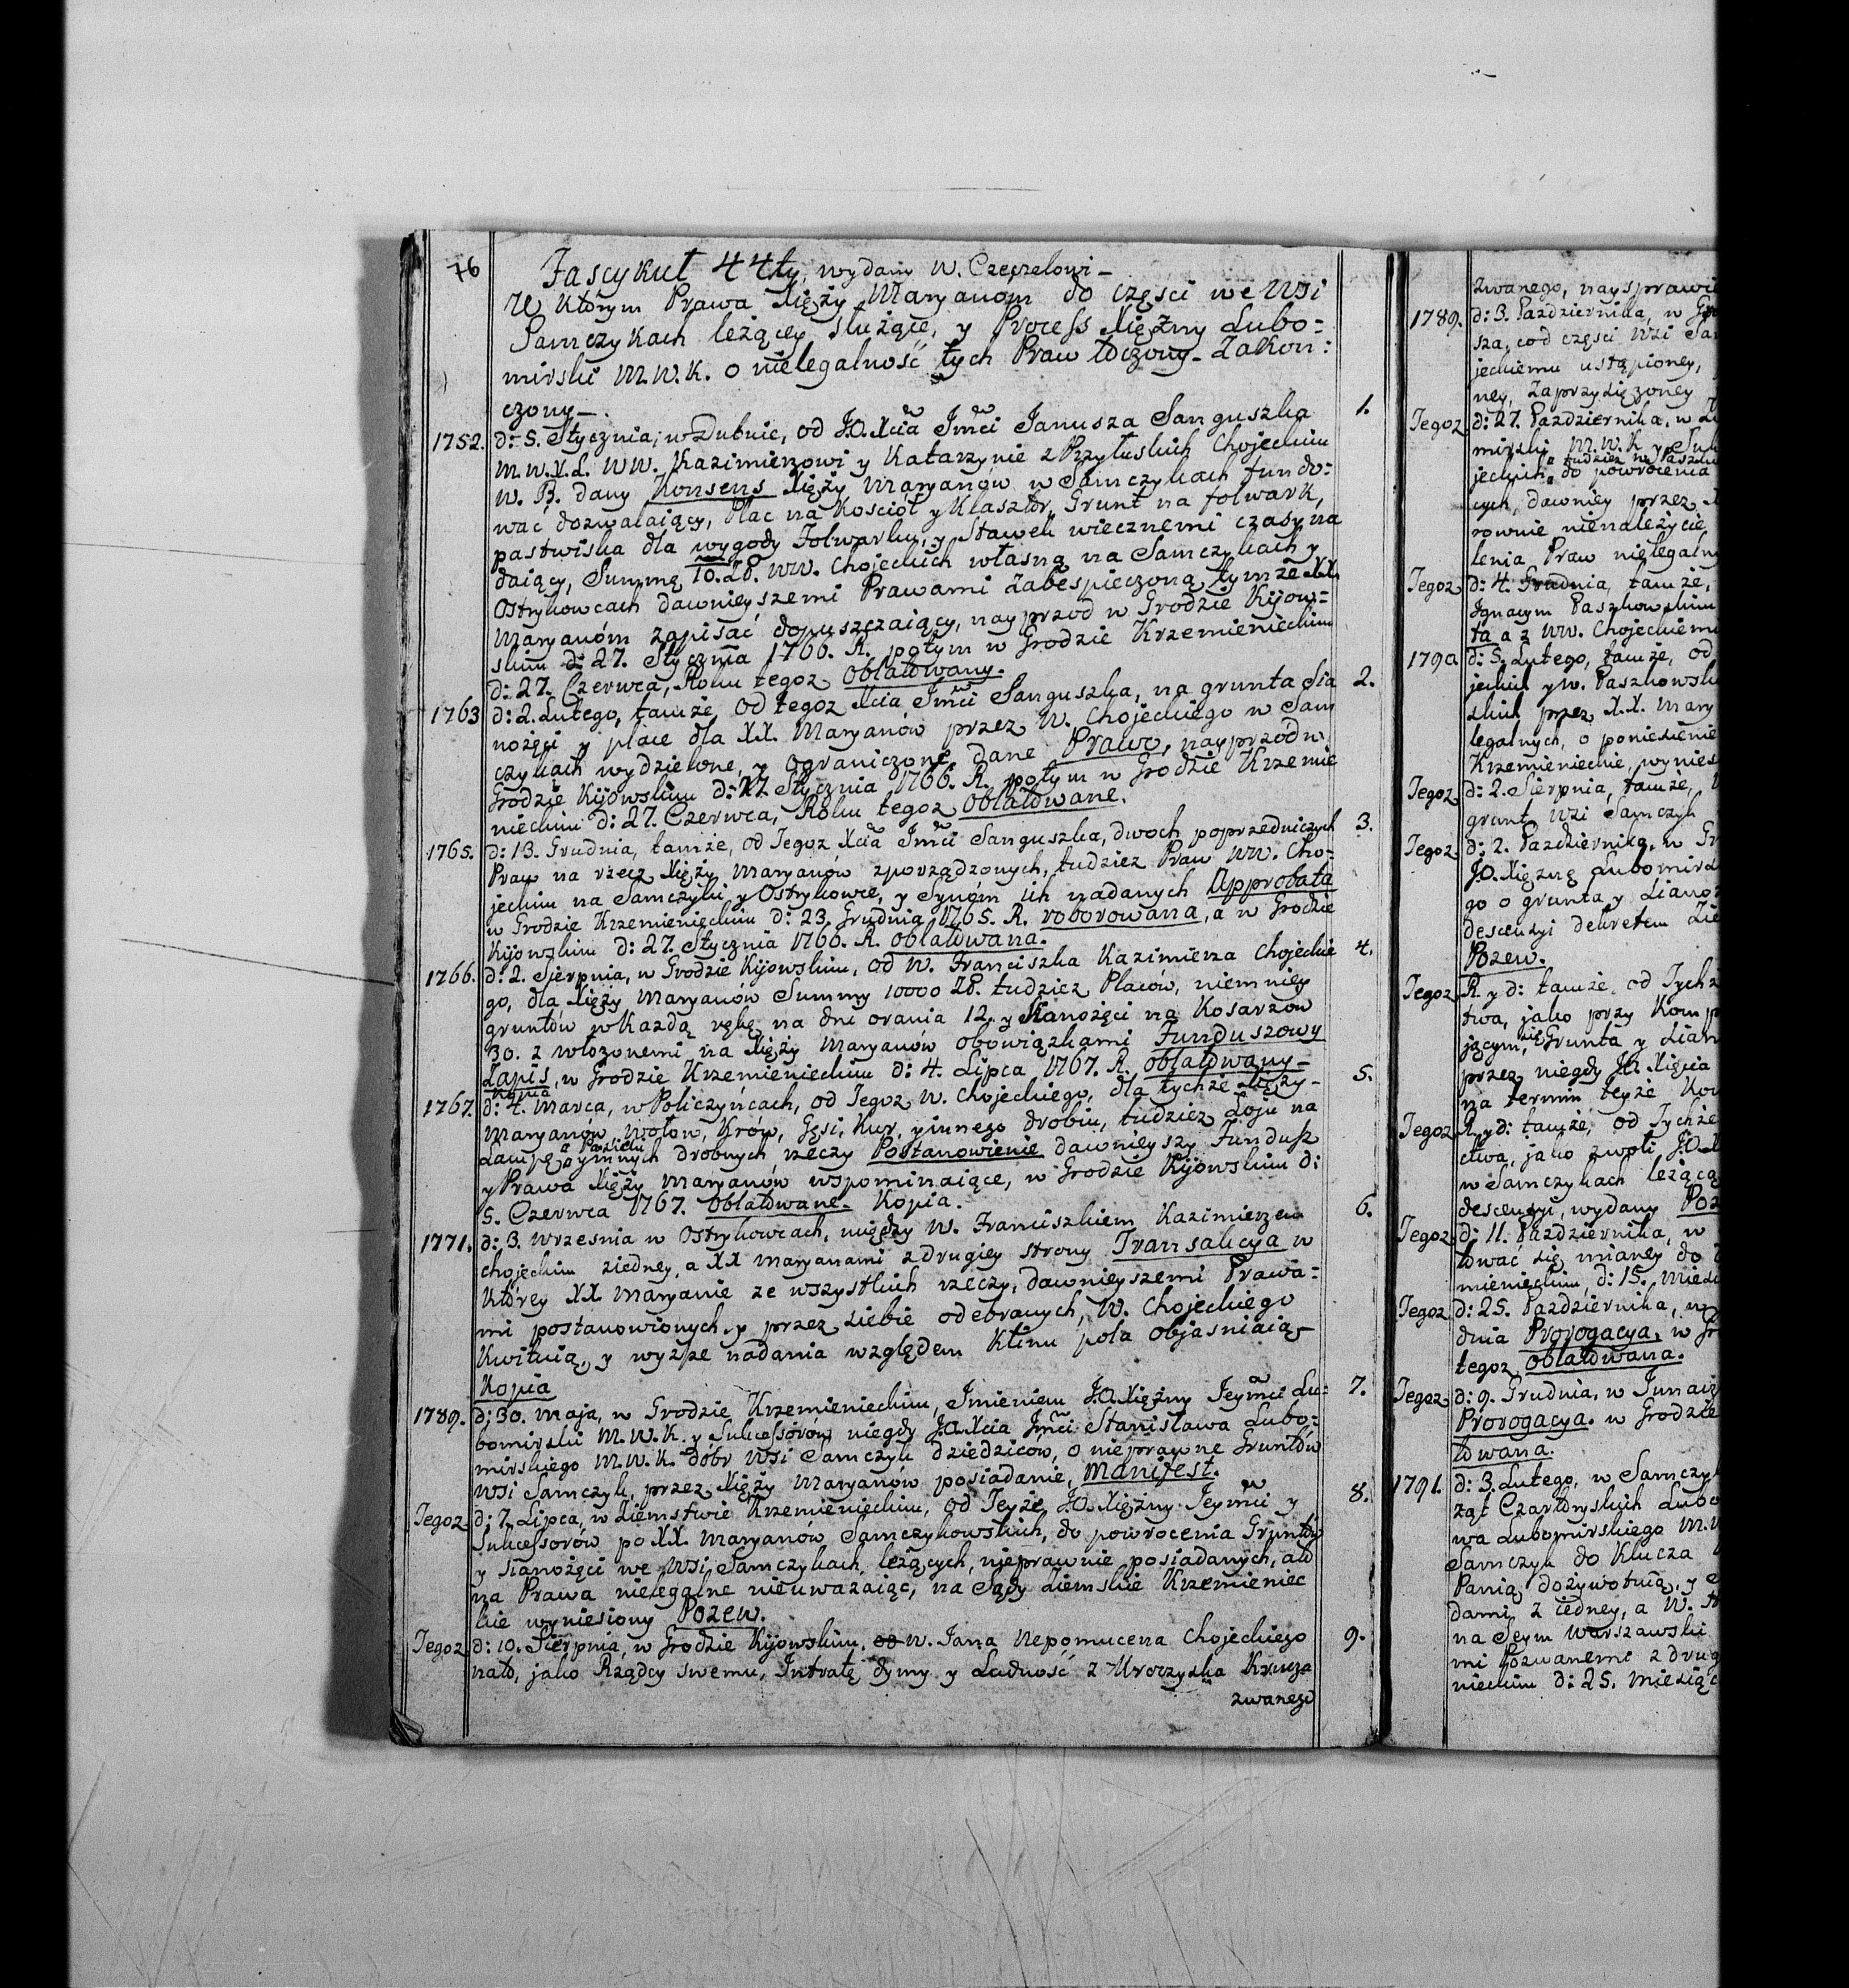 76
Fascykuł 44ty, wydany W. Czeczelowi –
W którym Prawa Xięży Maryanóm do części we Wsi
Samczykach leżącey służące, y Process Xiężny Lubo:
mirski M.W.K. o nielegalność tych Praw toczony – Zakoń:
czony –.
1752. d: 5. Stycznia, w Dubnie, od J.O. Xcia Jmći Janusza Sanguszka 1.
M.W.X.L. WW. Kazimierzowi y Katarzynie z Przyłuskich Chojeckim
W. B. dany Konsens Xięży Maryanów w Samczykach fundo:
wać dozwalaiący, Plac na Kościół y Klasztor, Grunt na folwark,
pastwiska dla wygody Folwarku, y Stawek wiecznemi czasy na
daiący, Summę 10. Zł. WW. Chojeckich własną na Samczykach y
Ostrykowcach dawnieyszemi Prawami zabespieczoną tymże XX.
Maryanóm zapisać dopuszczaiący, nayprzod w Grodzie Kijow:
skim d: 27. Stycznia 1766. R. potym w Grodzie Krzemienieckim
d: 27. Czerwca, Roku tegoż oblatowany.
1763 d: 2. Lutego, tamże od tegoż Xcia Jmći Sanguszka, na grunta Sia 2.
nożęci y place dla XX. Maryanów przez W. Chojeckiego w Sam
czykach wydzielone, y ograniczone, dane Prawo, nayprzod w
Grodzie Kijowskim d: 27. Stycznia 1766. R. potym w Grodzie Krzemie
nieckim d: 27. Czerwca, Roku tegoż oblatowane.
1765. d: 13. Grudnia, tamże, od Tegoż Xcia Jmći Sanguszka, dwoch poprzedniczych 3.
Praw na rzecz Xięży Maryanów zporządzonych, tudzież Praw WW. Cho:
jeckim na Samczyki y Ostrykowce, y Synóm ich nadanych Approbata
w Grodzie Krzemienieckim d: 23. Grudnia 1765. R. roborowana, a w Grodzie
Kijowskim d: 27. Stycznia 1766. R. oblatowana.
1766. d: 2. Sierpnia, w Grodzie Kijowskim, od W. Franciszka Kazimierza Chojeckie 4.
go, dla Xięży Maryanów Summy 10000 Zł. tudzież Placów, niemniey
gruntów w Każdą rękę na dni orania 12. y Sianożęci na Kosarzów
30. z włożonemi na Xięży Maryanów obowiązkami Funduszowy
Zapis, w Grodzie Krzemienieckim d: 4. Lipca 1767. R. oblatowany –
Konia
1767. d: 4. Marca, w Policzyńcach, od Tegoż W. Chojeckiego, dla tychże Xięży – 5.
Maryanów, Wołow, Krów, Gęsi, Kur, y innego drobiu, tudzież Łoju na
a Pasieki
Lampę y innych drobnych rzeczy Postanowienie dawnieyszy Fundusz
y Prawa Xięży Maryanów wspominaiące, w Grodzie Kijowskim d:
5. Czerwca 1767. oblatowane. Kopia.
1771. d: 3. Wrzesnia w Ostrykowcach, między W. Franciszkiem Kazimierzem 6.
Chojeckim z iedney, a XX Maryanami z drugiey strony Transakcya w
Którey XX Maryanie ze wszystkich rzeczy, dawnieyszemi Prawa:
mi postanowionych, y przez siebie odebranych, W. Chojeckiego
Kwituią, y wyższe nadania względem Klinu pola objasniaią –
Kopia
1789. d: 30. Maja, w Grodzie Krzemienieckim, Jmieniem J.O. Xiężny Jeymći Lu: 7.
bomirski M.W.K. y Sukcessorów niegdy J.O. Xcia Jmći Stanisława Lubo:
mirskiego M.W.K. dóbr Wsi Samczyk dziedziców, o nieprawne Gruntów
Wsi Samczyk, przez Xięży Maryanów posiadanie, Manifest.
Tegoż d: 7. Lipca, w Ziemstwie Krzemienieckim, od Teyże J.O. Xiężny Jeymći y 8.
Sukcessorów po XX. Maryanów Samczykowskich, do powrocenia Gruntów
y Sianożęci we Wsi Samczykach leżących, nieprawnie posiadanych, ato
na Prawa nielegalne nieuważaiąc, na Sądy Ziemskie Krzemieniec
kie wyniesiony Pozew.
Tegoż d: 10. Sierpnia, w Grodzie Kijowskim, od W. Jana Nepomucena Chojeckiego 9.
nato, jako Rządcy swemu, Intratę dymy y Ludność z Uroczyska Krucza
zwanego
zwanego, nay sprawi
1789. d: 3. Października, w Gro
sza, cod części Wsi Sam
jeckiemu ustąpioney,
ney, Zaprzysiężoney
Tegoż d: 27. Października, w
mirski M.W.K. y Suk
tudzież W. Paszko
jeckich do powrócenia
cych, dawniey przez
rownie nienależycie
lenia Praw nielegaln
Tegoż d: 4. Grudnia, tamże,
Ignacym Paszkowskim
ta a z WW. Chojeckiemi
1790 d: 5. Lutego, tamże, od
jeckich y W. Paszkowski
skich przez X.X. Mary
legalnych, o poniesienie
Krzemienieckie, wynies
Tegoż d: 2. Sierpnia, tamże,
grunt Wsi Samczyk
Tegoż d: 2. Października, w Gr
J.O. Xiężnę Lubomirs
go o grunta y Siano
descenzyi dekretem Zie
Pozew.
Tegoż R. y d: tamże, od Tychż
twa, jako przy Komp
jącym się Grunta y Sian
przez niegdy J.O. Xięcia
na termin teyże Kon
Tegoż R. y d: tamże, od Tychże
ctwa, jako zwoli J.O.
w Samczykach leżącą
descenzyi, wydany Poz
Tegoż d: 11. Października, w
tować się mianey do
mienieckim, d: 15. Miesi
Tegoż d: 25. Października, w
dnia Prorogacya, w Gr
tegoż oblatowana.
Tegoż d: 9. Grudnia, w
Prorogacya. w Grodzie
towana.
1791. d: 3. Lutego, w Samczy
żąt Czartoryskich Lubo
wa Lubomirskiego M.W
Samczyk do Klucza
Panią dożywotnią, y
dami z iedney, a W.
na Seym Warszawski
mi Pozwanemi z drug
nieckim d: 25. miesiąc